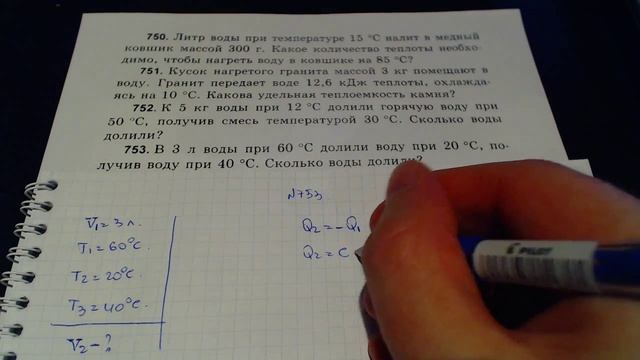 750. Литр воды при температуре 15 °С налит в медный
ковшик массой 300 г. Какое количество теплоты необхо-
димо, чтобы нагреть воду в ковшике на 85 °С?
751. Кусок нагретого гранита массой 3 кг помещают в
воду. Гранит передает воде 12,6 кДж теплоты, охлажда-
ясь на 10 °С. Какова удельная теплоемкость камня?
752. К 5 кг воды при 12 °С долили горячую воду при
50 °С, получив смесь температурой 30 °С. Сколько воды
долили?
753. В 3 л воды при 60 °С долили воду при 20 °С, по-
лучив воду при 40 °С. Сколько воды долили?
№753
V₁ = 3 л.
T₁ = 60°С.
T₂ = 20°С.
T₃ = 40°С.
V₂ – ?
Q₂ = –Q₁
Q₂ = C
PILOT